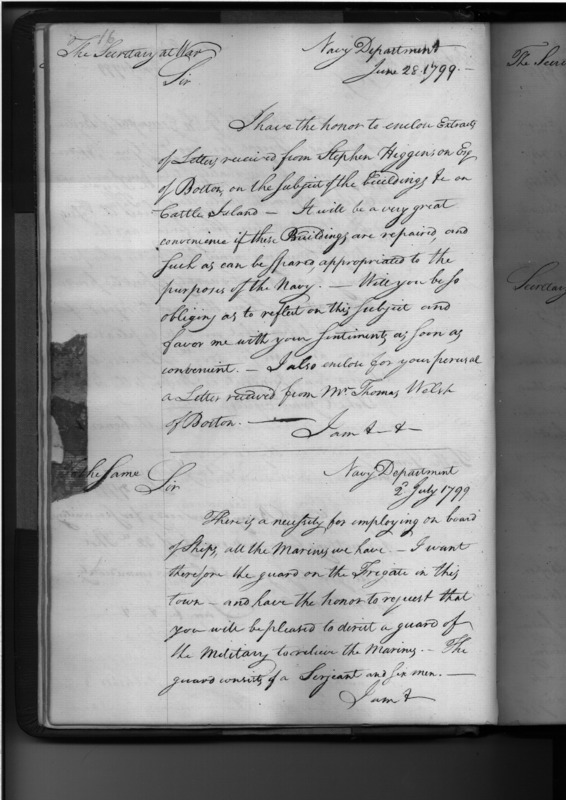 16
The Secretary at War Navy Department
Sir June 28. 1799. -
I have the honor to enclose Extracts
of Letters received from Stephen Higgenson Esq
of Boston, on the subject of the Buildings &c on
Castle Island - It will be a very great
convenience if these Buildings are repaired, and
such as can be spared, appropriated to the
purposes of the Navy. - Will you be so
obliging as to reflect on this subject and
favor me with your sentiments as soon as
convenient. - I also enclose for your perusal
a Letter received from Mr. Thomas Welsh
of Boston. - I am & - &
the Same Sir Navy Department
2d July 1799
There is a necessity for employing on board
of Ships, all the Marines we have - I want
therefore the guard on the Frigate in this
town - and have the honor to request that
you will be pleased to direct a guard of
the Military to relieve the Marines. - The
guard consists of a Serjeant and six men. -
I am &
The Secre
Secretary